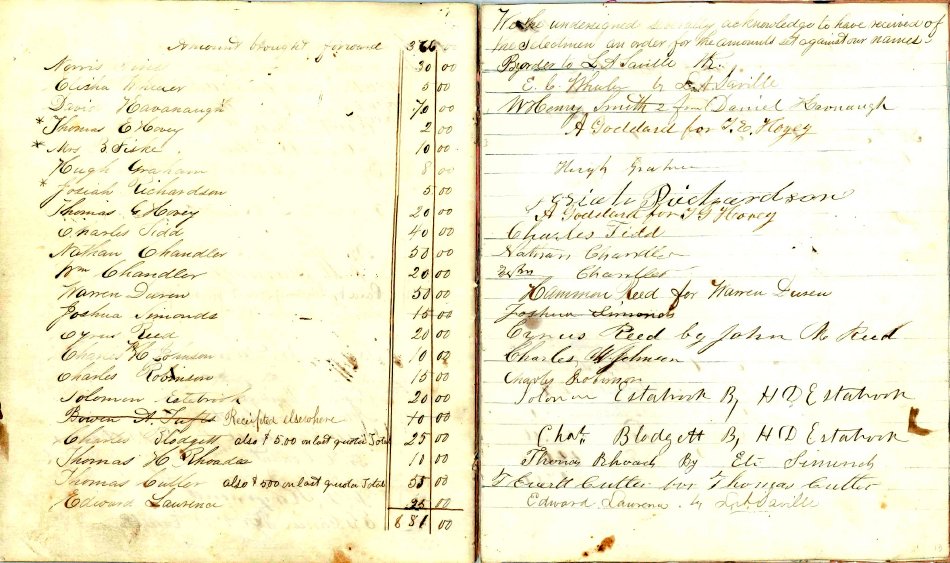 Amount brought forward 376 00
Norris 30 00
Elisha 5 00
Davis Kavanaugh 70 00
* Thomas E Hovey 2 00
* Mrs S Fiske 10 00
Hugh Graham 8 00
* Josiah Richardson 5 00
Thomas G Hovey 20 00
Charles Tidd 40 00
Nathan Chandler 50 00
Wm Chandler 20 00
Warren Duren 50 00
Joshua Simonds 15 00
Cyrus Reed 20 00
Charles H Johnson 10 00
Charles Robinson 15 00
Solomon Estabrook 20 00
Bowen A. Tufts Receipted elsewhere 00
Charles Blodgett also $ 5.00 on last quota Total 25 00
Thomas H. Rhoades 10 00
Thomas Cutler also $ 5 00 on last quota Total 55 00
Edward Laurence 00
881 00
We the undersigned severally acknowledge to have received of
the Selectmen an order for the amounts set against our names
By order to L A Saville
E. C. by L A Saville
W Henry Smith 2 for Daniel Kavnaugh
A Goddard for T, E, Hovey
Hugh Graham
Josiah Richardson
A Goddard for T G Hovey
Charles Tidd
Nathan Chandler
Wm Chandler
Hammon Reed for Warren Duren
Joshua Simonds
Cyrus Reed by John M Reed
Charles H Johnson
Charles Robinson
Solomon Estabrook By H D Estabrook
Chas Blodgett By H D Estabrook
Thomas Rhoads By Eli Simonds
Cutler for Thomas Cutler
Edward Laurence by L A Saville